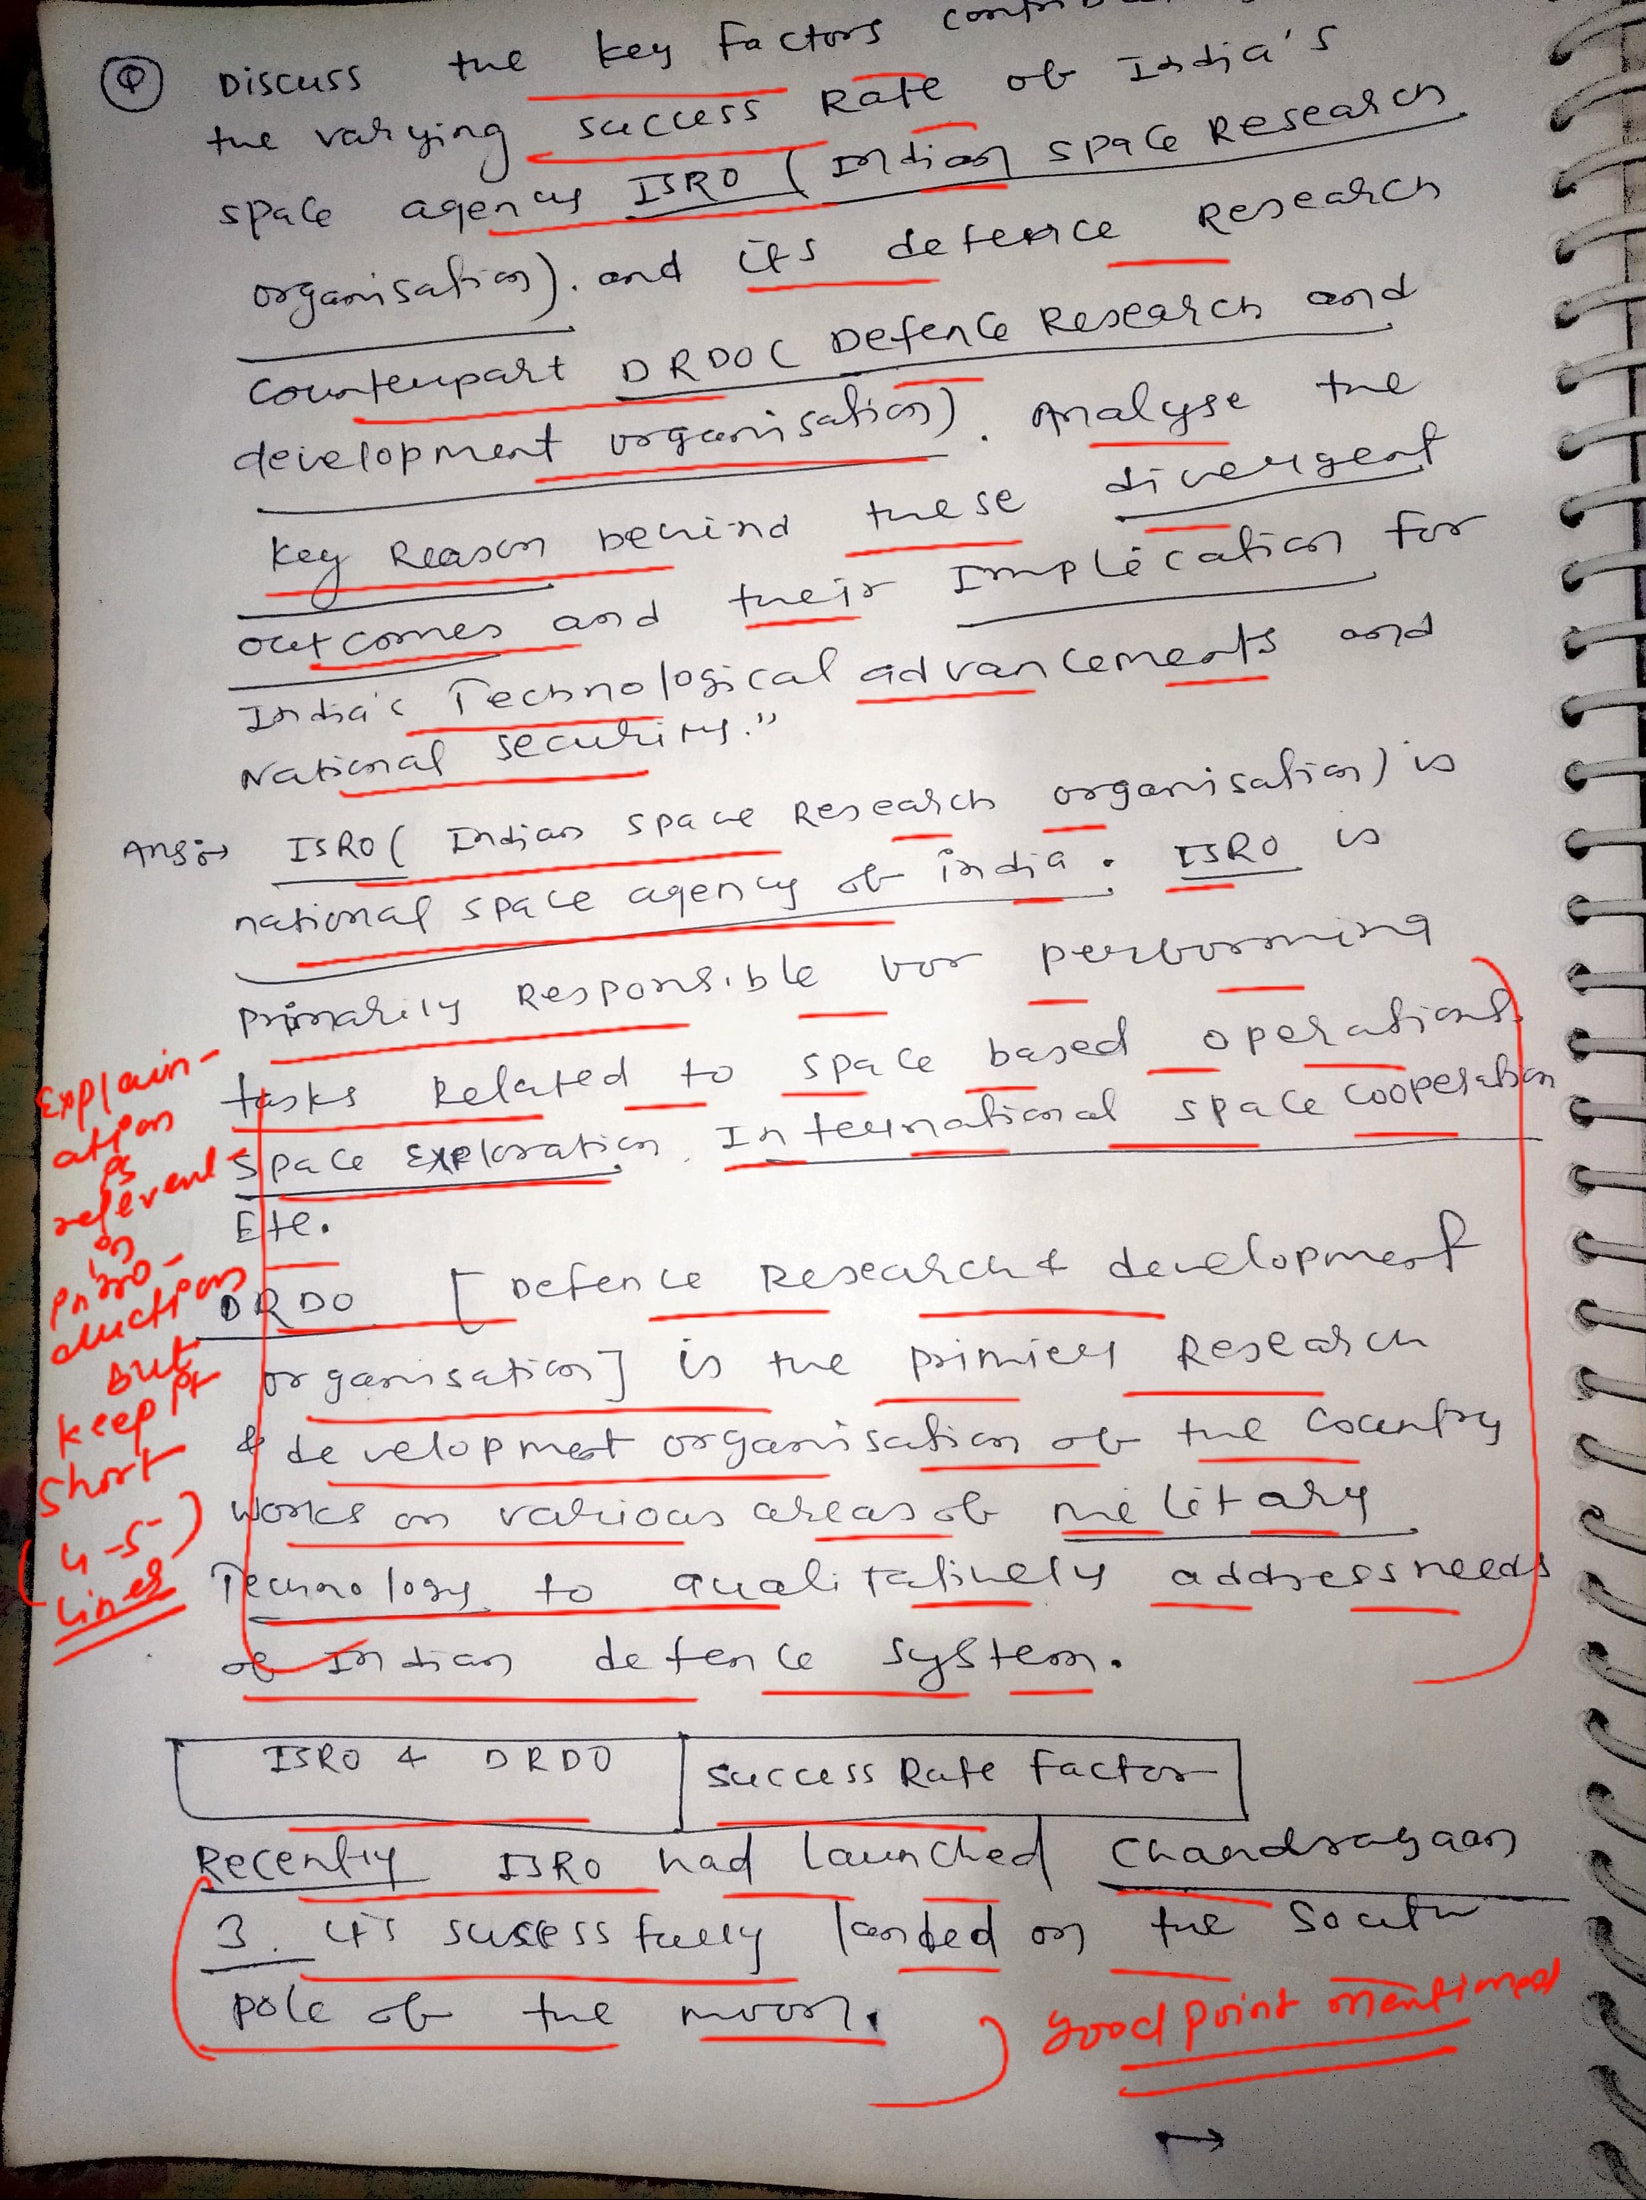 Q Discuss the key factors
the varying success Rate of India's
space agency ISRO (Indian space Research
organisation). and its defence Research
Counterpart DRDO ( Defence Research and
development organisation). Analyse the
key Reason behind these divergent
outcomes and their Implication for
India's Technological advancements and
National security."
Ans:→ ISRO ( Indian space Research organisation) is
national space agency of india. ISRO is
primarily Responsible for performing
tasks Related to space based operations.
space Exploration. International space cooperation
Etc.
DRDO [Defence Research & development
organisation] is the primiery Research
& development organisation of the country
works on various areas of military
Technology to qualitatively address needs
of Indian defence system.
Explain-
ation
is
relevent
in
intro-
duction
but
keep it
short
(4-5)
lines
ISRO & DRDO
success Rate factor
Recently ISRO had launched Chandrayaan
3. It's sucessfully landed on the South
pole of the moon.
Good point mentioned
→